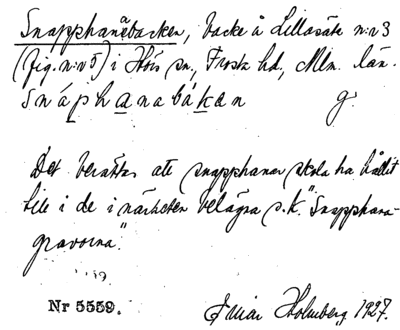 Snapphanebacken, backe å Lillasäte n:r 3
(fig. n:r 5) i Hörs sn, Frosta hd, Mlm. län.
snápphanabákan g.
Det berättas att snapphanar skola ha hållit
till i de i närheten belägna s.k. "Snapphana-
gravorna".
Nr 5559.
Einar Holmberg 1927.